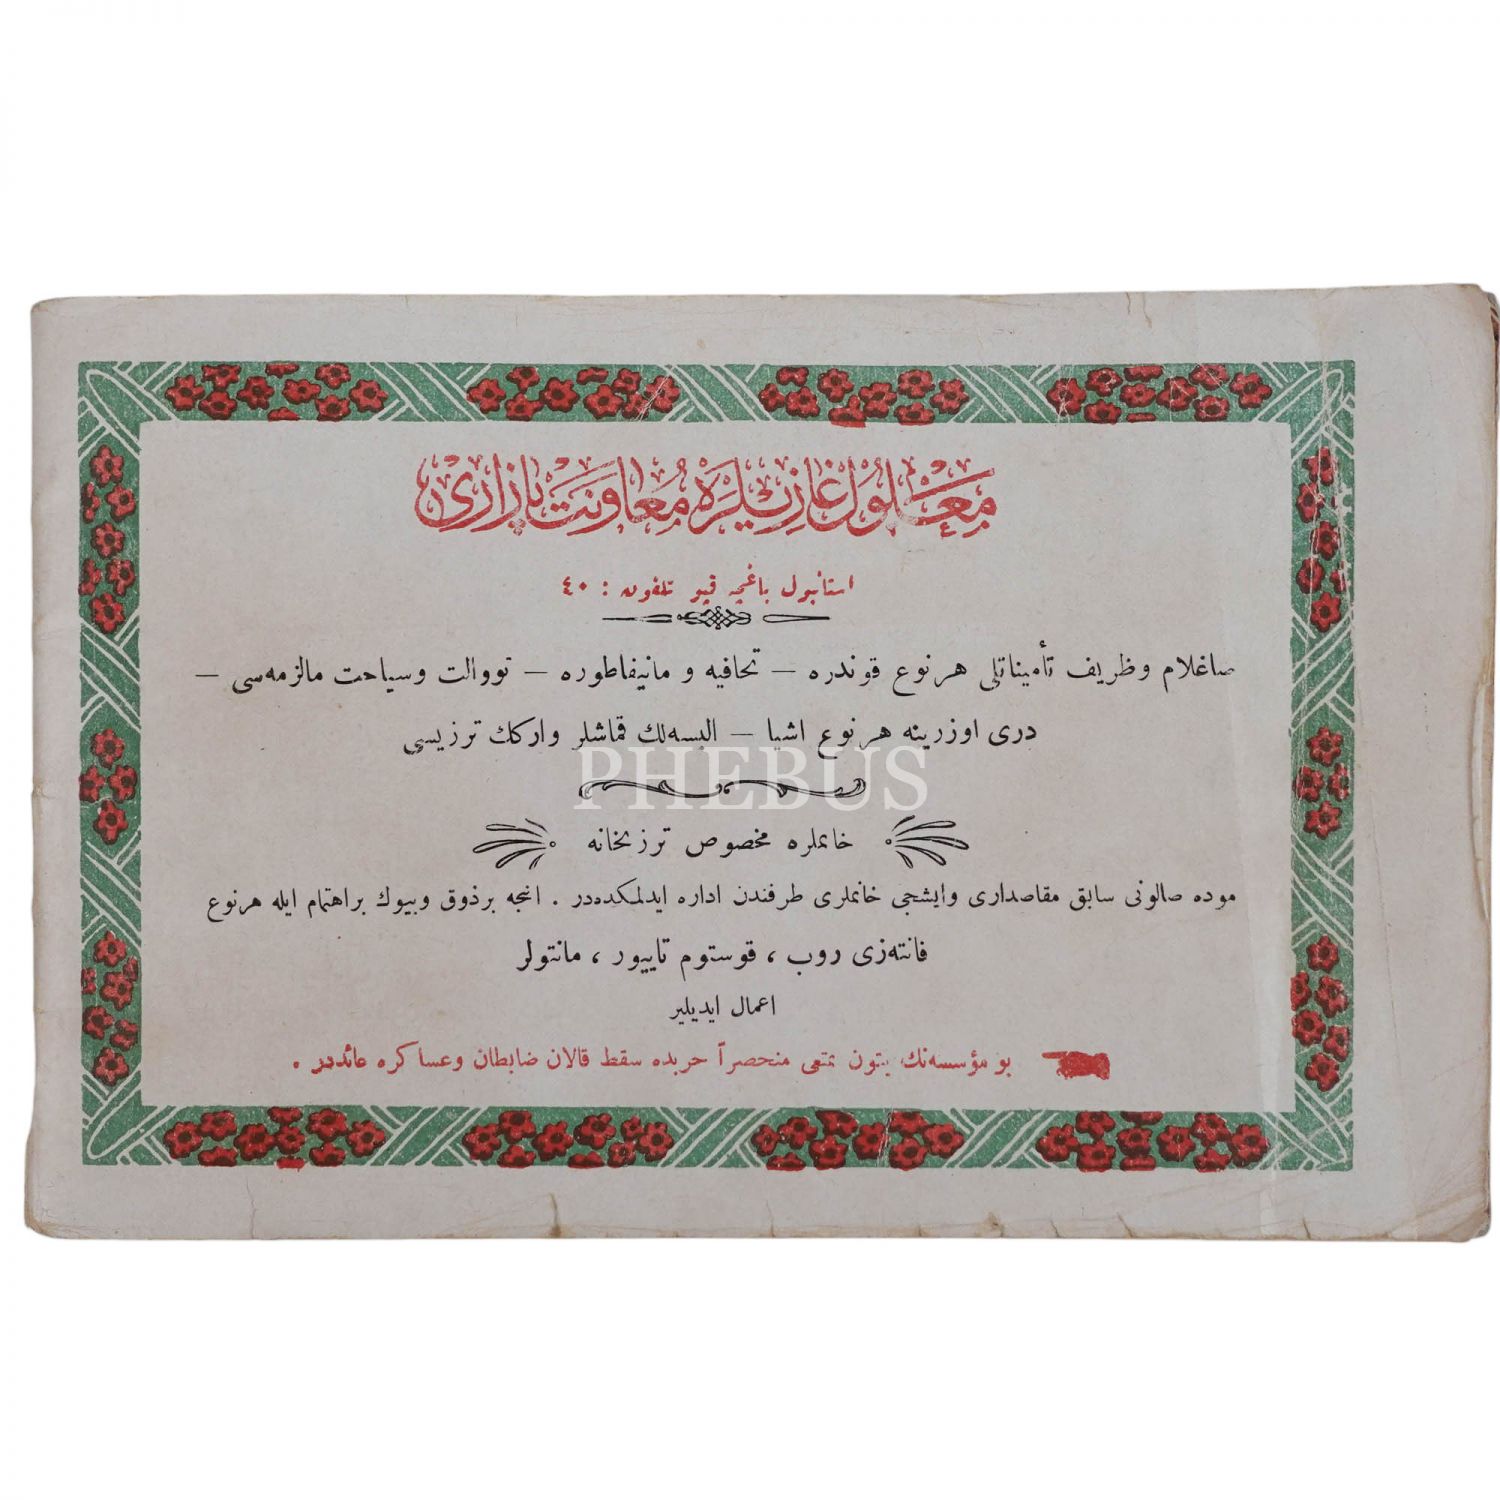 معلول غازیلره معاونت بازاری
استانبول باغچه قپو تلفون : ٤٠
صاغلام وظریف تأمیناتلی هرنوع قوندره — تحافیه و مانیفاطوره — تووالت وسیاحت مالزمه‌سی —
دری اوزرینه هرنوع اشیا — البسه‌لك قماشلر وارکك ترزیسی
PHEBUS
خانملره مخصوص ترزیخانه
موده صالونی سابق مقاصداری وایشجی خانملری طرفندن اداره ایدلمکده‌در . انجه برذوق وبیوك براهتمام ایله هرنوع
فانته‌زی روب ، قوستوم تاییور ، مانتولر
اعمال ایدیلیر
بو مؤسسه‌نك بتون تمتعی منحصراً حربده سقط قالان ضابطان وعساکره عائددر .